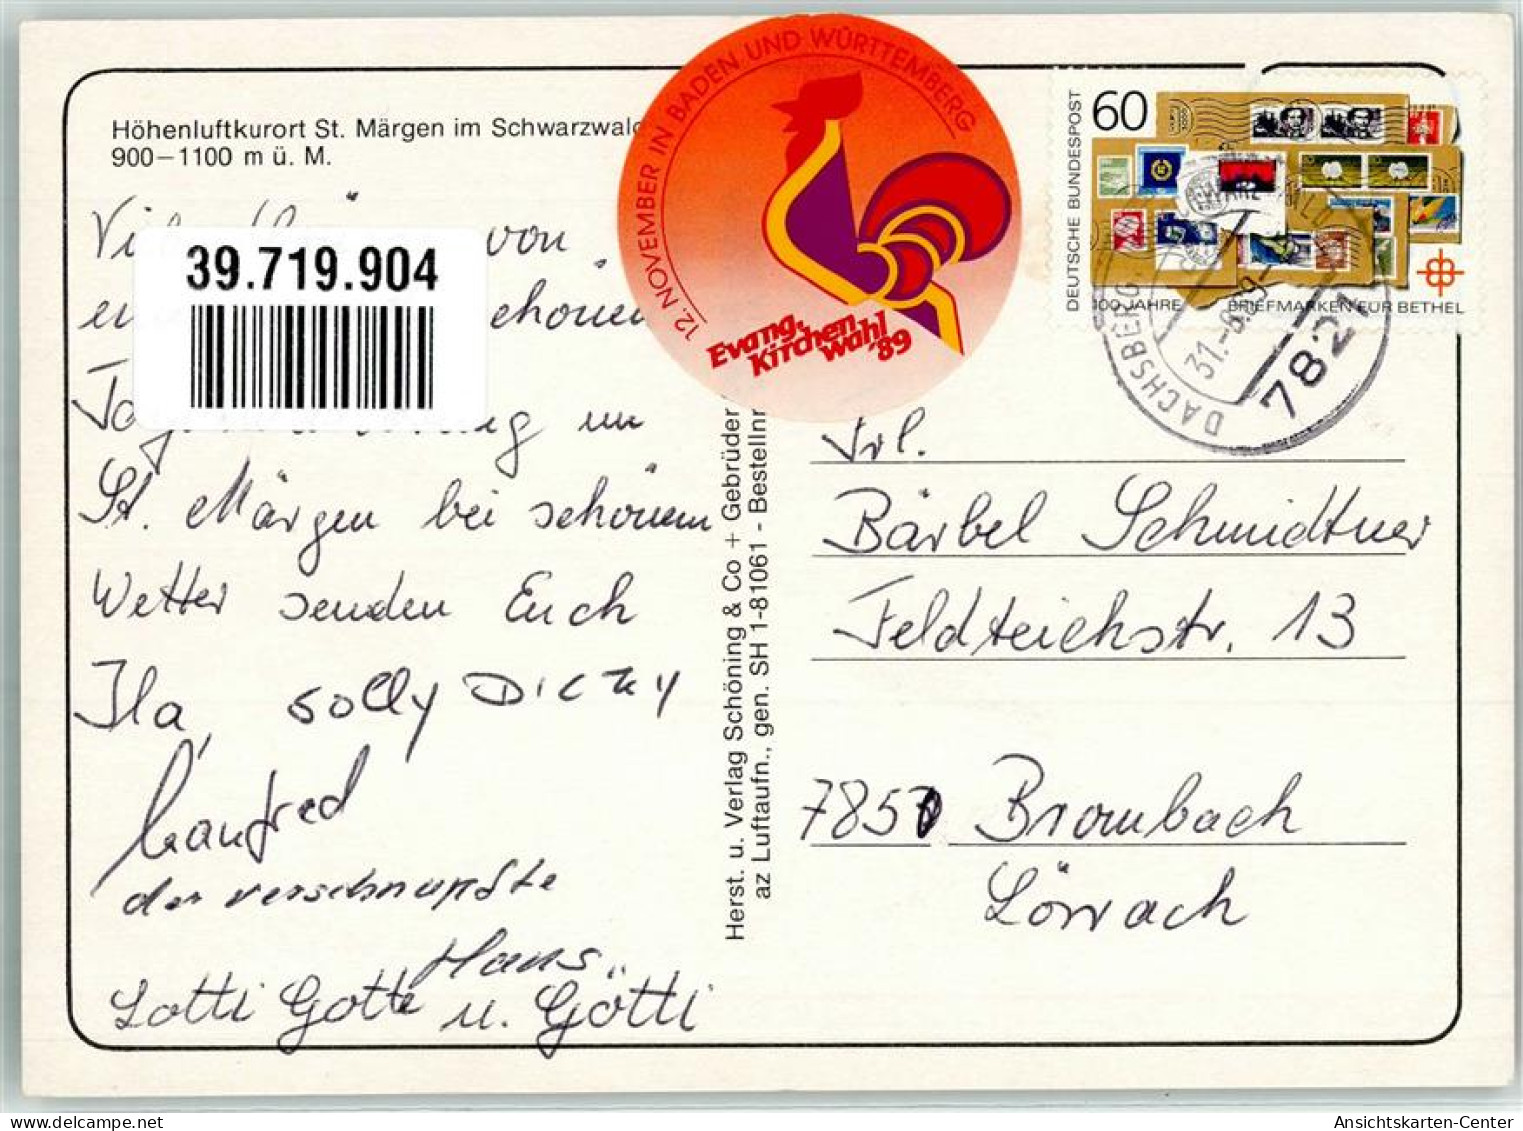 Höhenluftkurort St. Märgen im Schwarzwald
900–1100 m ü. M.
von
39.719.904
Tag
in
St. Märgen bei schönem
Wetter senden Euch
Ila, Solly Dicky
Manfred
der verschnupfte
Hans
Lotti Gotte u. Götti
12. NOVEMBER IN BADEN UND WÜRTTEMBERG
Evang.
Kirchen
wahl
'89
Herst. u. Verlag Schöning & Co + Gebrüder
az Luftaufn., gen. SH 1-81061 - Bestellnr
DEUTSCHE BUNDESPOST
60
100 JAHRE BRIEFMARKEN FÜR BETHEL
DACHSBERG
31.-8.89-
782
Frl.
Bärbel Schmidtner
Feldteichstr. 13
7850 Brombach
Lörrach
Ansichtskarten-Center